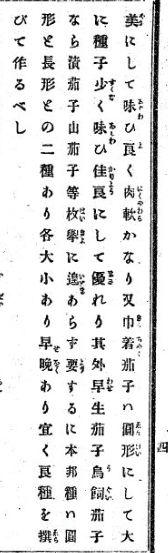 美にして味ひ良く肉軟かなり又巾着茄子ハ圓形にして大
に種子少く味ひ佳良にして優れり其外早生茄子鳥飼茄子
なら漬茄子山茄子等枚擧に遑あらず要するに本邦種ハ圓
形と長形との二種あり各大小あり早晩あり宜く良種を撰
びて作るべし
四